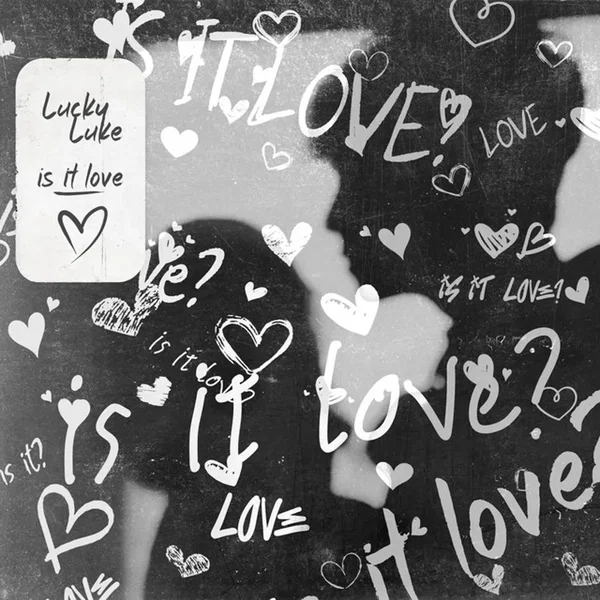 IS IT LOVE?
Lucky
Luke
is it love
LOVE
ve?
IS IT LOVE?
is it love
is it love?
is it?
LOVE
it love?
LOVE